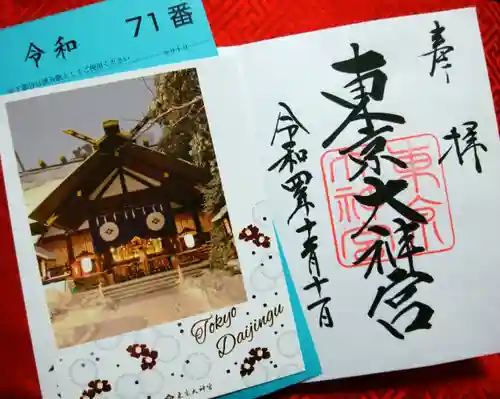 令和
71番
Tokyo
Daijingu
東京大神宮
奉拝
東京大神宮
令和四年十一月十一日